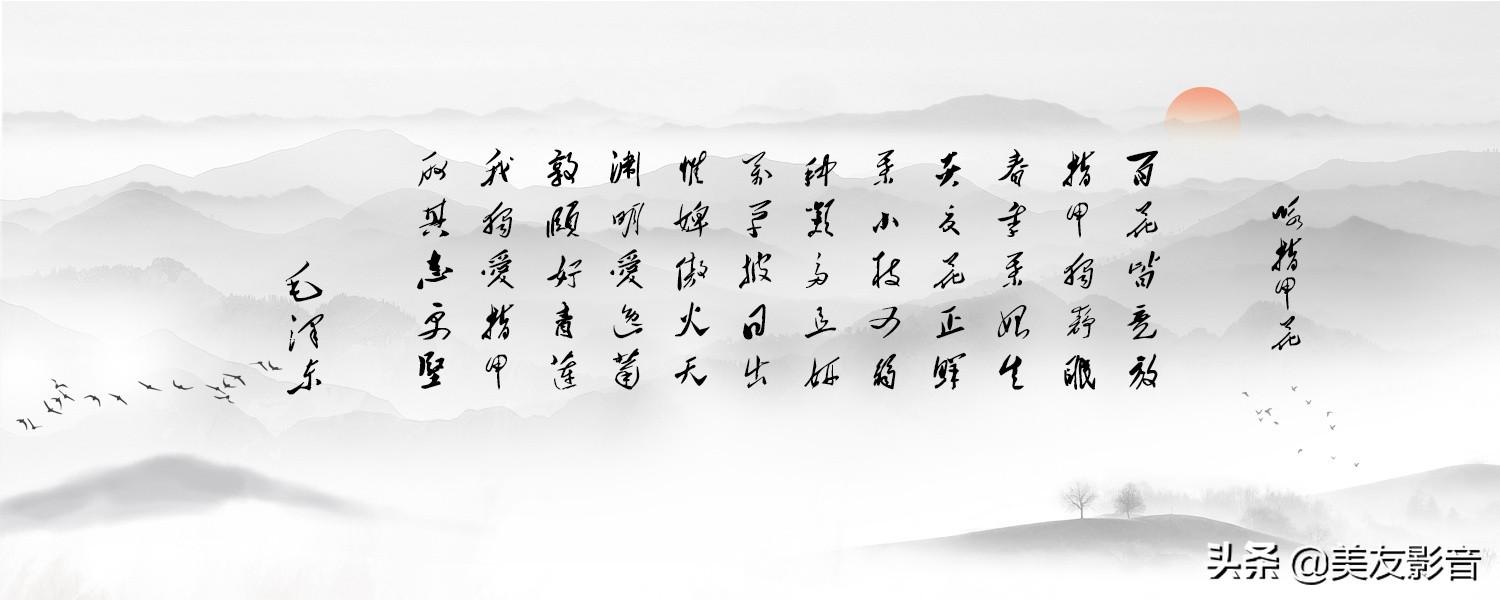 咏指甲花
百花皆竞放
指甲獨靜眠
春季葉始生
炎夏花正鲜
葉小枝又弱
种類多且妍
萬草披日出
惟婢傲火天
渊明愛逸菊
敦頤好青蓮
我獨愛指甲
取其志更坚
毛泽东
头条 @美友影音